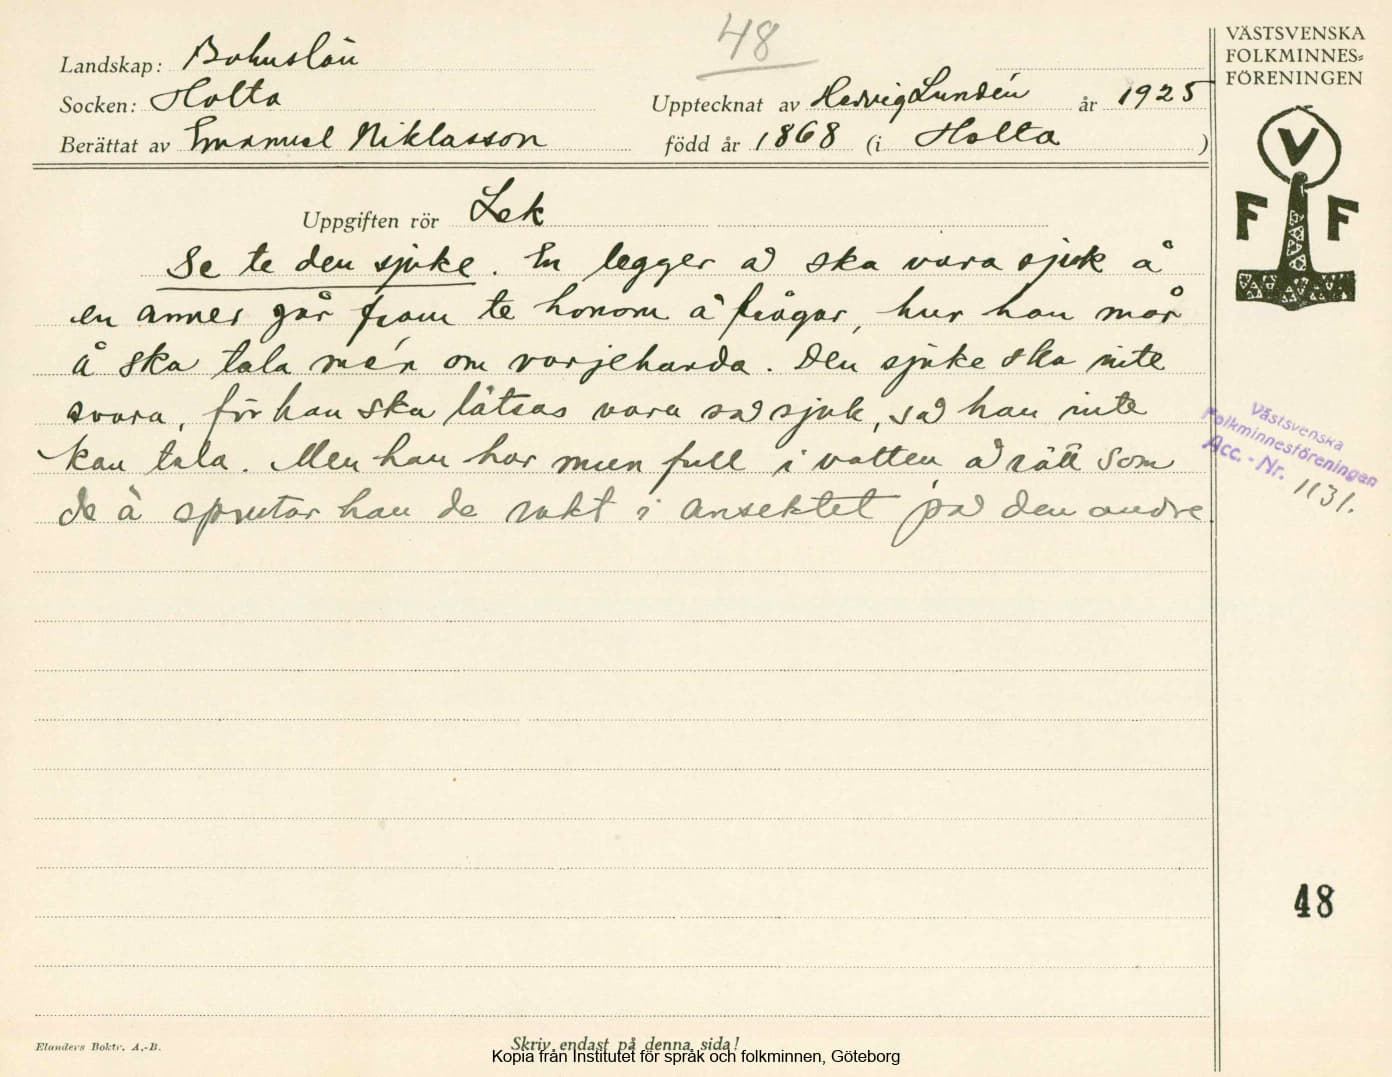 48
Landskap: Bohuslän
Socken: Holta
Upptecknat av Hedvig Lundén år 1925
Berättat av Emanuel Niklasson
född år 1868 (i Holta )
VÄSTSVENSKA
FOLKMINNES=
FÖRENINGEN
V
F F
Uppgiften rör Lek
Se te den sjuke. En legger så ska vara sjuk å
en anner går fram te honom å frågar, hur han mår
å ska tala mén om varjehanda. Den sjuke ska inte
svara, för han ska låtsas vara så sjuk, så han inte
kan tala. Men han har mun full i vatten å rätt som
de ä sprutar han de rakt i ansektet på den andre
Västsvenska
Folkminnesföreningen
Acc. - Nr. 1131.
48
Elanders Boktr. A.-B.
Skriv endast på denna sida!
Kopia från Institutet för språk och folkminnen, Göteborg